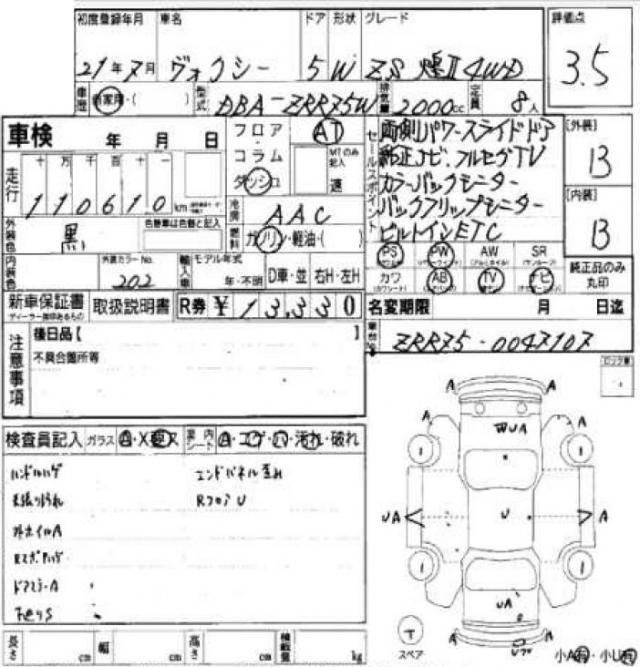 初度登録年月 車名 ドア 形状 グレード 評価点
21年7月 ヴォクシー 5 W ZS 煌Ⅱ 4WD 3.5
車歴 自家用・( ) 型式 DBA-ZRR75W 排気量 2000cc 定員 8人
車検 年 月 日
フロア AT
コラム MTのみ記入
ダッシュ 速
走行 十 万 千 百 十 一
110610 km
冷房 AAC
燃料 ガソリン・軽油・( )
セールスポイント
両側パワースライドドア
純正ナビ フルセグTV
カラーバックモニター
バックフリップモニター
ビルトインETC
[外装]
B
[内装]
B
外装色 黒 色替車は色替と記入
内装色 外装カラーNo. 202
輸入車 モデル年式 年・不明 D車・並 右H・左H
PS PW AW SR
カワ AB TV ナビ
純正品のみ丸印
新車保証書 取扱説明書 R券 ¥13,330
ディーラー捺印あるもの
名変期限 月 日迄
車台No. ZRR75-0047107
注意事項
後日品【 】
不具合箇所等
検査員記入 ガラス A・X 内 シート A・コゲ・ハ・汚れ・破れ
ハンドルハゲ エンドパネル歪み
RフロアU
外ホイルA
ドアミラーA
下廻りS
A A
A A
WUA
1 1
UA U A
1 1
UA
T
スペア
A A
小A・小U
長さ cm 幅 cm 高さ cm 積載量 kg